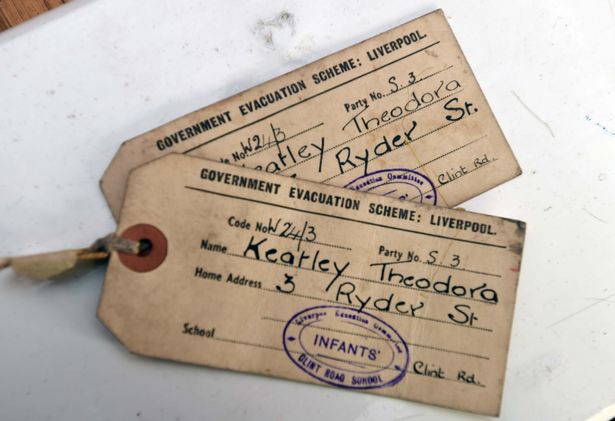 GOVERNMENT EVACUATION SCHEME: LIVERPOOL.
No. W24/3 Party No. S. 3
Keatley Theodora
Ryder St.
Clint Rd.
GOVERNMENT EVACUATION SCHEME: LIVERPOOL.
Code No. W24/3 Party No. S. 3
Name Keatley Theodora
Home Address 3 Ryder St
School Clint Rd.
Liverpool Education Committee
INFANTS'
CLINT ROAD SCHOOL